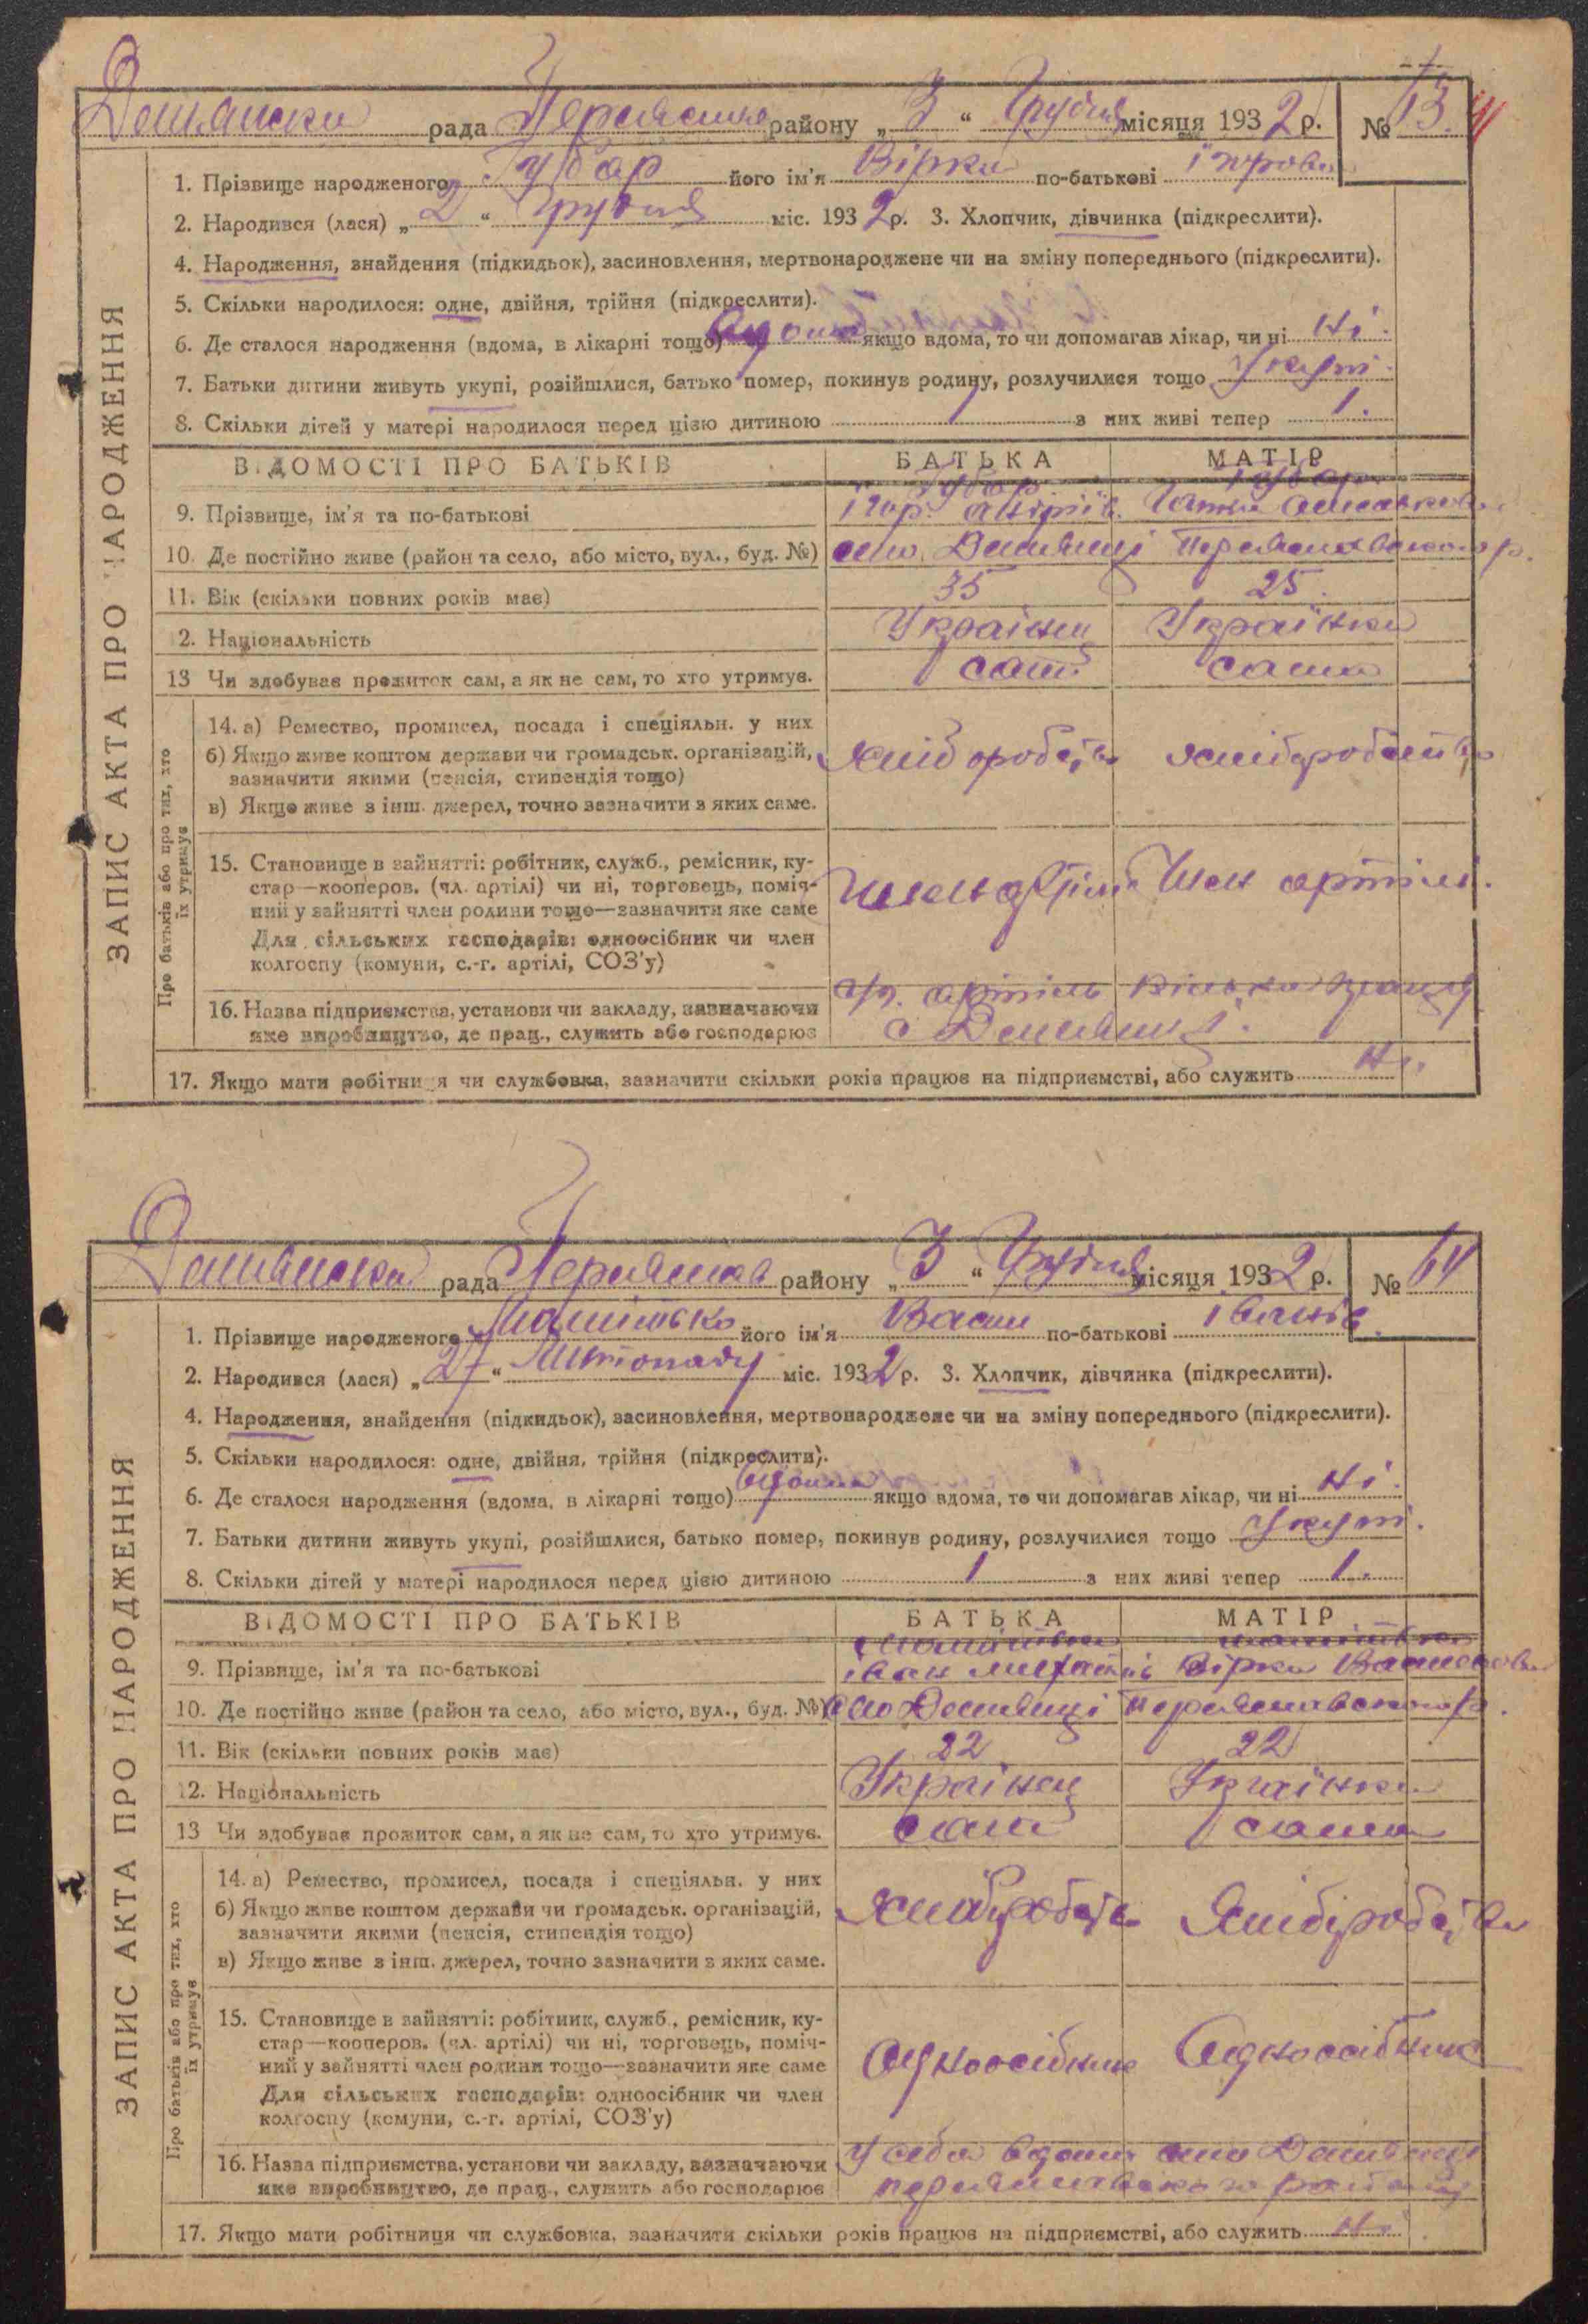 ЗАПИС АКТА ПРО НАРОДЖЕННЯ
Демянска рада Переяслав району „3“ Грудня місяця 1932 р. № 13
1. Прізвище народженого Губар його ім'я Вірка по-батькові
2. Народився (лася) „2“ Грудня міс. 1932 р. 3. Хлопчик, дівчинка (підкреслити).
4. Народження, знайдення (підкидьок), засиновлення, мертвонароджене чи на зміну попереднього (підкреслити).
5. Скільки народилося: одне, двійня, трійня (підкреслити).
6. Де сталося народження (вдома, в лікарні тощо) вдома якщо вдома, то чи допомагав лікар, чи ні Ні.
7. Батьки дитини живуть укупі, розійшлися, батько помер, покинув родину, розлучилися тощо Укупі.
8. Скільки дітей у матері народилося перед цією дитиною 1 з них живі тепер 1.
ВІДОМОСТІ ПРО БАТЬКІВ БАТЬКА МАТІР
Губар Губар
9. Прізвище, ім'я та по-батькові
10. Де постійно живе (район та село, або місто, вул., буд. №) село Демянці Переяславського р.
11. Вік (скільки повних років має) 35 25
12. Національність Українец Українка
13 Чи здобуває прожиток сам, а як не сам, то хто утримує. сам сама
Про батьків або про тих, хто їх утримує
14. а) Ремество, промисел, посада і спеціяльн. у них
б) Якщо живе коштом держави чи громадськ. організацій, хліборобство хліборобство
зазначити якими (пенсія, стипендія тощо)
в) Якщо живе з інш. джерел, точно зазначити з яких саме.
15. Становище в зайнятті: робітник, служб., ремісник, ку-
стар—кооперов. (чл. артілі) чи ні, торговець, поміч- Член артілі Член артілі.
ний у зайнятті член родини тощо—зазначити яке саме
Для сільських господарів: одноосібник чи член
колгоспу (комуни, с.-г. артілі, СОЗ'у)
16. Назва підприємства, установи чи закладу, зазначаючи артіль
яке виробництво, де прац., служить або господарює с Демянці.
17. Якщо мати робітниця чи службовка, зазначити скільки років працює на підприємстві, або служить Ні.
ЗАПИС АКТА ПРО НАРОДЖЕННЯ
Демянска рада Переяслав району „3“ Грудня місяця 1932 р. № 14
1. Прізвище народженого його ім'я Васил по-батькові Іванів
2. Народився (лася) „27“ Листопаду міс. 1932 р. 3. Хлопчик, дівчинка (підкреслити).
4. Народження, знайдення (підкидьок), засиновлення, мертвонароджене чи на зміну попереднього (підкреслити).
5. Скільки народилося: одне, двійня, трійня (підкреслити).
6. Де сталося народження (вдома, в лікарні тощо) вдома якщо вдома, то чи допомагав лікар, чи ні Ні.
7. Батьки дитини живуть укупі, розійшлися, батько помер, покинув родину, розлучилися тощо Укупі.
8. Скільки дітей у матері народилося перед цією дитиною 1 з них живі тепер 1.
ВІДОМОСТІ ПРО БАТЬКІВ БАТЬКА МАТІР
9. Прізвище, ім'я та по-батькові Іван Михайлів Вірка
10. Де постійно живе (район та село, або місто, вул., буд. №) село Демянці Переяславського р.
11. Вік (скільки повних років має) 22 22
12. Національність Українец Українка
13 Чи здобуває прожиток сам, а як не сам, то хто утримує. сам сама
Про батьків або про тих, хто їх утримує
14. а) Ремество, промисел, посада і спеціяльн. у них
б) Якщо живе коштом держави чи громадськ. організацій, хліборобство хліборобство
зазначити якими (пенсія, стипендія тощо)
в) Якщо живе з інш. джерел, точно зазначити з яких саме.
15. Становище в зайнятті: робітник, служб., ремісник, ку-
стар—кооперов. (чл. артілі) чи ні, торговець, поміч-
ний у зайнятті член родини тощо—зазначити яке саме Одноосібник Одноосібник
Для сільських господарів: одноосібник чи член
колгоспу (комуни, с.-г. артілі, СОЗ'у)
16. Назва підприємства, установи чи закладу, зазначаючи У себе вдома село Демянці
яке виробництво, де прац., служить або господарює переяславського району
17. Якщо мати робітниця чи службовка, зазначити скільки років працює на підприємстві, або служить Ні.